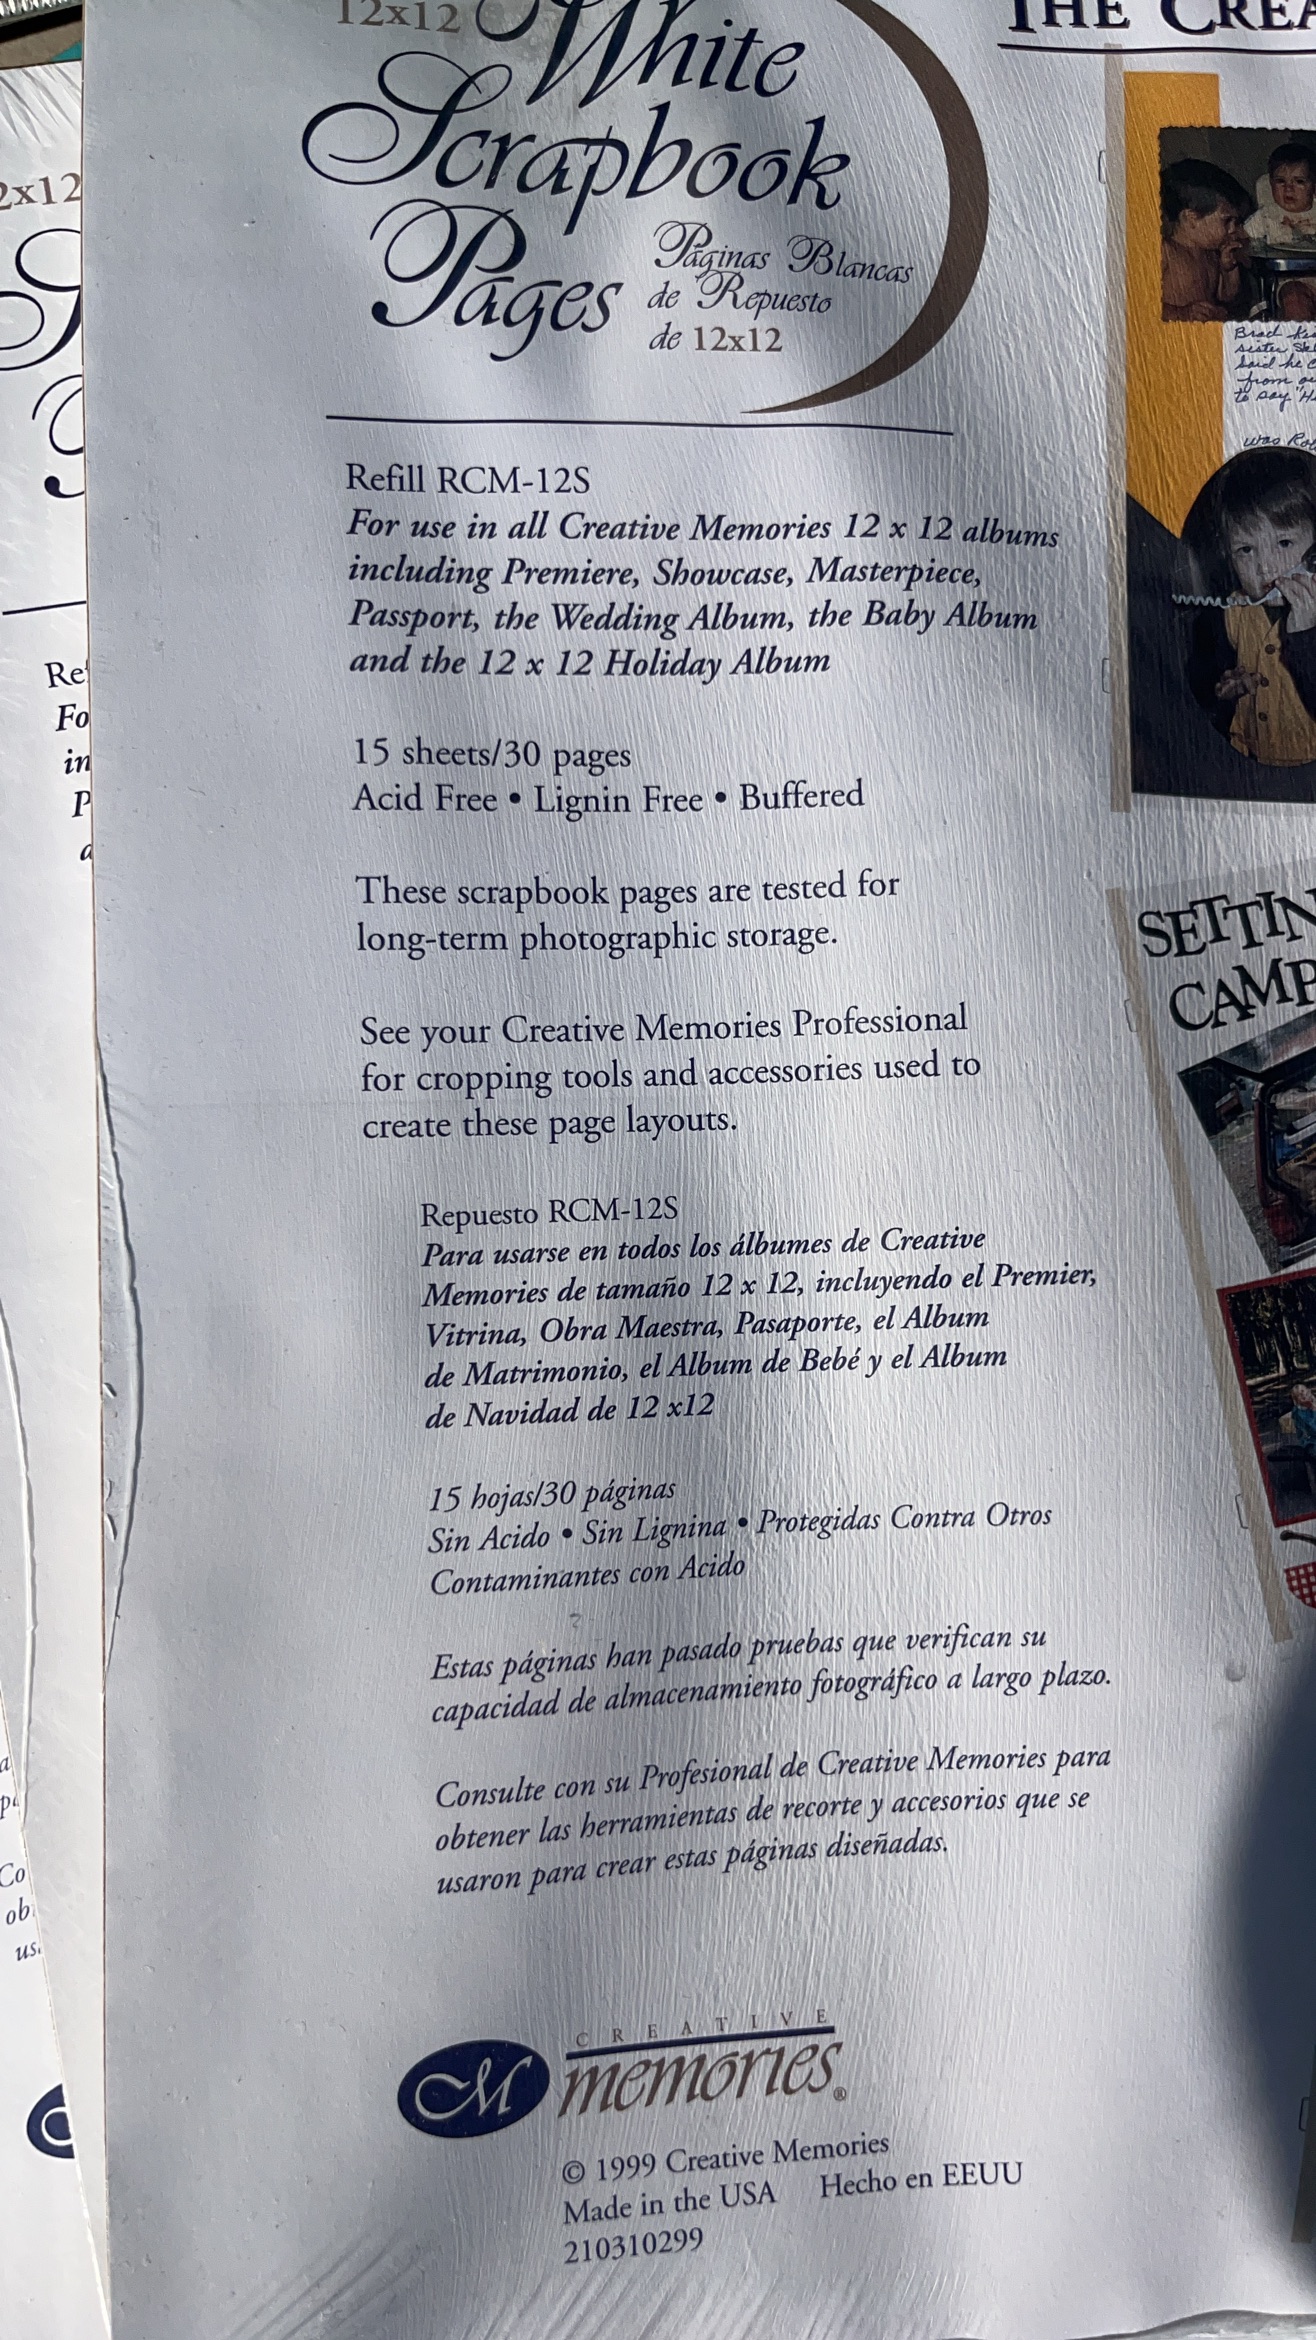 12x12 White
Scrapbook
Pages
Páginas Blancas
de Repuesto
de 12x12
Refill RCM-12S
For use in all Creative Memories 12 x 12 albums
including Premiere, Showcase, Masterpiece,
Passport, the Wedding Album, the Baby Album
and the 12 x 12 Holiday Album
15 sheets/30 pages
Acid Free • Lignin Free • Buffered
These scrapbook pages are tested for
long-term photographic storage.
See your Creative Memories Professional
for cropping tools and accessories used to
create these page layouts.
Repuesto RCM-12S
Para usarse en todos los álbumes de Creative
Memories de tamaño 12 x 12, incluyendo el Premier,
Vitrina, Obra Maestra, Pasaporte, el Album
de Matrimonio, el Album de Bebé y el Album
de Navidad de 12 x12
15 hojas/30 páginas
Sin Acido • Sin Lignina • Protegidas Contra Otros
Contaminantes con Acido
Estas páginas han pasado pruebas que verifican su
capacidad de almacenamiento fotográfico a largo plazo.
Consulte con su Profesional de Creative Memories para
obtener las herramientas de recorte y accesorios que se
usaron para crear estas páginas diseñadas.
CM CREATIVE
memories®
© 1999 Creative Memories
Made in the USA Hecho en EEUU
210310299
THE CREA
Brad
sister
said he
from
to say "H
was
SETTIN
CAMP
2x12
Re
Fo
in
P
a
Co
ob
us